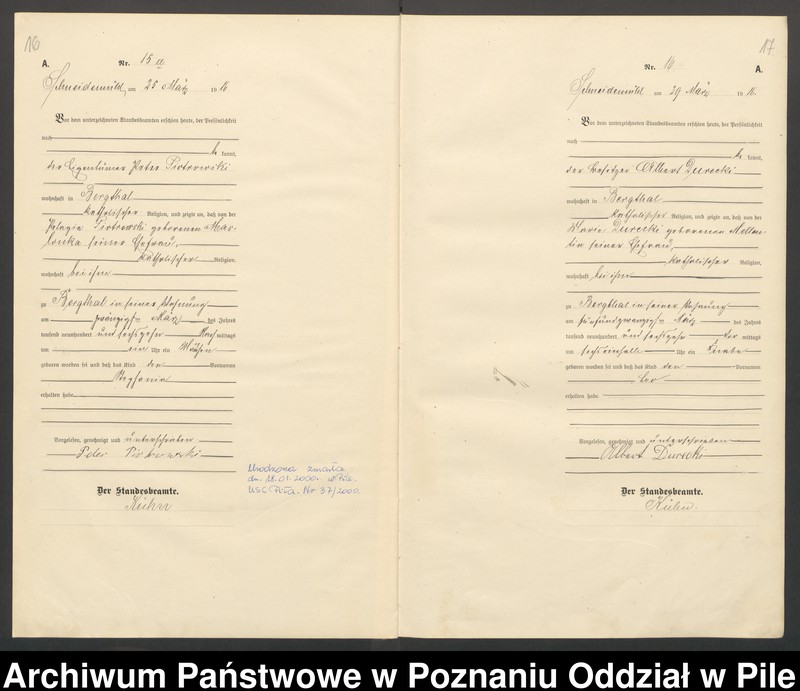 16
A.
Nr. 15
Schneidemühl, am 25 März 1916
Vor dem unterzeichneten Standesbeamten erschien heute, der Persönlichkeit
nach
kannt,
der Eigentümer Peter Piotrowski
wohnhaft in Bergthal
katholischer Religion, und zeigte an, daß von der
Pelagia Piotrowski geborenen Mar-
lonka seiner Ehefrau,
katholischer Religion,
wohnhaft bei ihm
zu Bergthal in seiner Wohnung
am zwanzigsten März des Jahres
tausend neunhundert und sechszehn Nachmittags
um ein Uhr ein Mädchen
geboren worden sei und daß das Kind den Vornamen
erhalten habe
Vorgelesen, genehmigt und unterschrieben
Peter Piotrowski
Der Standesbeamte.
Kühn
Urodzona zmarła
dn. 18.01.2000. w Pile.
USC Piła. Nr 37/2000.
17
A.
Nr. 16
Schneidemühl am 29 März 1916.
Vor dem unterzeichneten Standesbeamten erschien heute, der Persönlichkeit
nach
kannt,
der Besitzer Albert Durecki
wohnhaft in Bergthal
katholischer Religion, und zeigte an, daß von der
Maria Durecki geborenen
seiner Ehefrau
katholischer Religion,
wohnhaft bei ihm
zu Bergthal in seiner Wohnung
am fünfundzwanzigsten März des Jahres
tausend neunhundert und sechszehn Vor mittags
um sechseinhalb Uhr ein Knabe
geboren worden sei und daß das Kind den Vornamen
Leo
erhalten habe
Vorgelesen, genehmigt und unterschrieben
Albert Durecki
Der Standesbeamte.
Kühn.
Archiwum Państwowe w Poznaniu Oddział w Pile